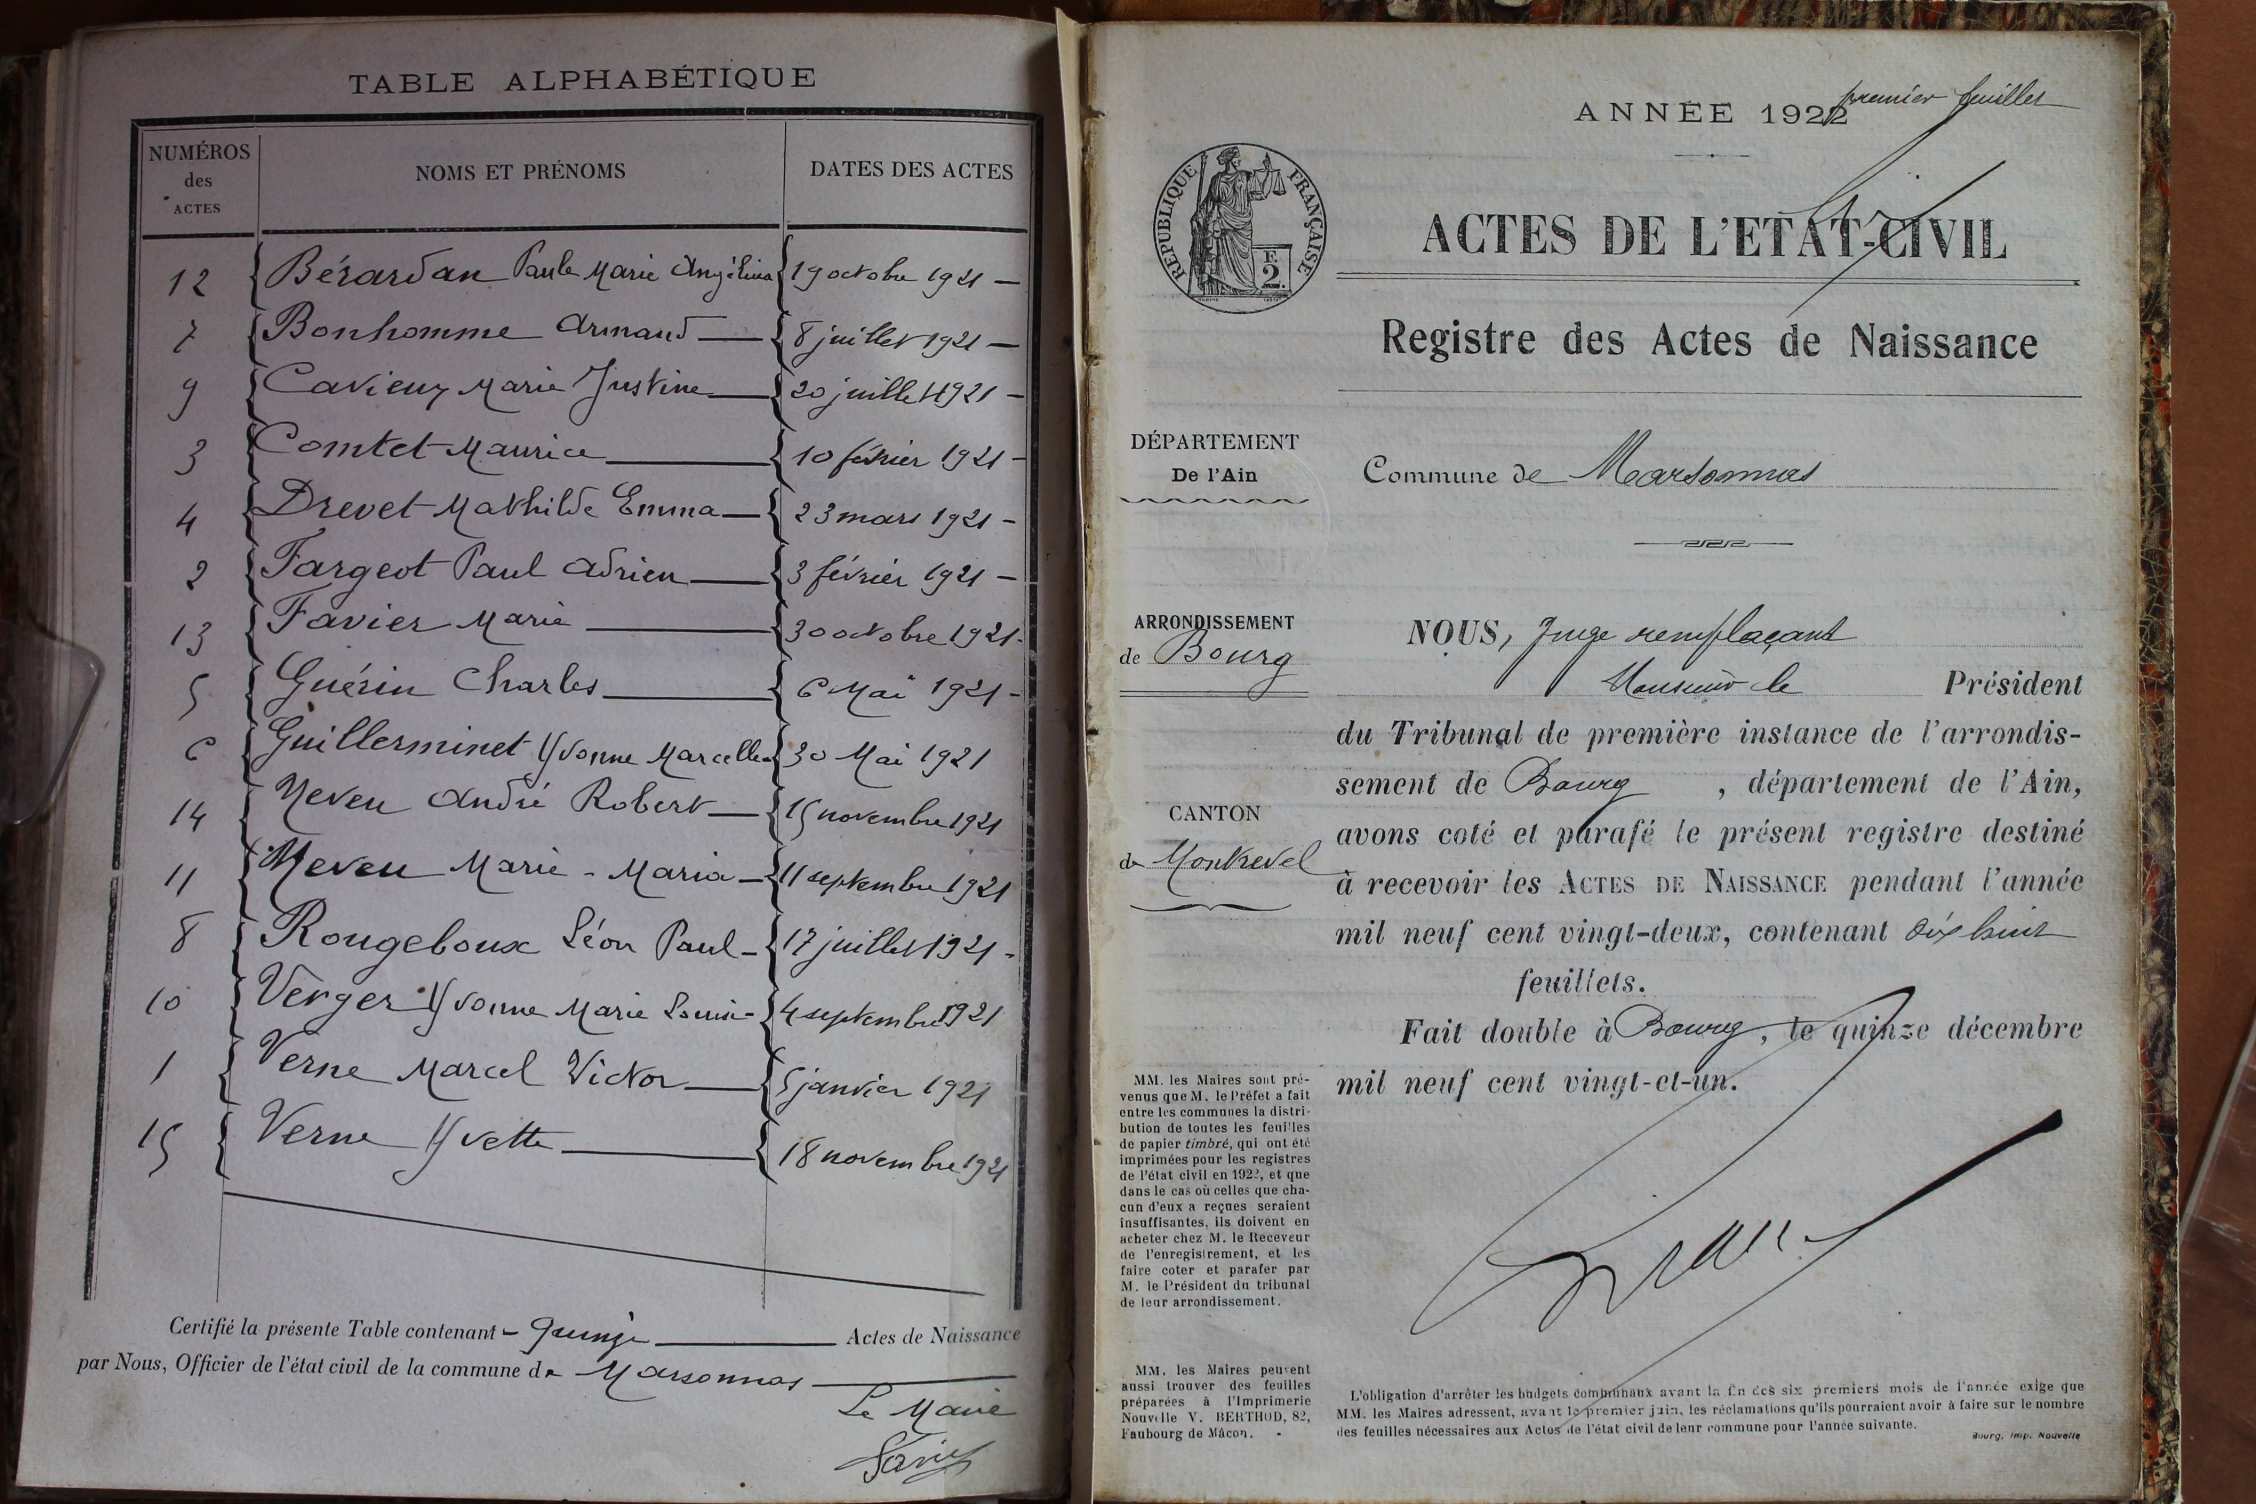 TABLE ALPHABÉTIQUE
NUMÉROS des ACTES
NOMS ET PRÉNOMS
DATES DES ACTES
12 Bérardan Paule Marie Angélina 19 octobre 1921
7 Bonhomme Armand 8 juillet 1921
9 Cavieux Marie Justine 20 juillet 1921
3 Comtet Maurice 10 février 1921
4 Drevet Mathilde Emma 23 mars 1921
2 Fargeot Paul Adrien 3 février 1921
13 Favier Marie 30 octobre 1921
5 Guérin Charles 6 Mai 1921
6 Guillerminet Yvonne Marcelle 30 Mai 1921
14 Neveu André Robert 15 novembre 1921
11 Neveu Marie-Maria 11 septembre 1921
8 Rongeboux Léon Paul 17 juillet 1921
10 Verger Yvonne Marie Louise 4 septembre 1921
1 Verne Marcel Victor 5 janvier 1921
15 Verne Yvette 18 novembre 1921
Certifié la présente Table contenant quinze Actes de Naissance
par Nous, Officier de l'état civil de la commune de Marsonnas
Le Maire
premier feuillet
ANNÉE 1922
RÉPUBLIQUE FRANÇAISE
2
ACTES DE L'ETAT-CIVIL
Registre des Actes de Naissance
DÉPARTEMENT
De l'Ain
Commune de Marsonnas
ARRONDISSEMENT
de Bourg
CANTON
de Montrevel
NOUS, Juge remplaçant
Monsieur le Président
du Tribunal de première instance de l'arrondis-
sement de Bourg, département de l'Ain,
avons coté et parafé le présent registre destiné
à recevoir les ACTES DE NAISSANCE pendant l'année
mil neuf cent vingt-deux, contenant dix huit
feuillets.
Fait double à Bourg, le quinze décembre
mil neuf cent vingt-et-un.
MM. les Maires sont pré-
venus que M. le Préfet a fait
entre les communes la distri-
bution de toutes les feuilles
de papier timbré, qui ont été
imprimées pour les registres
de l'état civil en 1922, et que
dans le cas où celles que cha-
cun d'eux a reçues seraient
insuffisantes, ils doivent en
acheter chez M. le Receveur
de l'enregistrement, et les
faire coter et parafer par
M. le Président du tribunal
de leur arrondissement.
MM. les Maires peuvent
aussi trouver des feuilles
préparées à l'Imprimerie
Nouvelle V. BERTHOD, 82,
Faubourg de Mâcon.
L'obligation d'arrêter les budgets communaux avant la fin des six premiers mois de l'année exige que
MM. les Maires adressent, avant le premier juin, les réclamations qu'ils pourraient avoir à faire sur le nombre
des feuilles nécessaires aux Actes de l'état civil de leur commune pour l'année suivante.
Bourg, Imp. Nouvelle